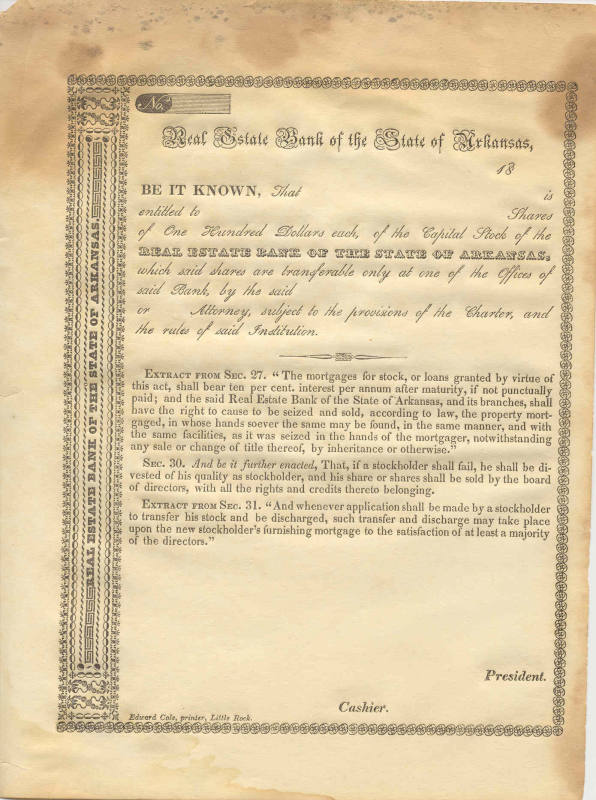 No.
Real Estate Bank of the State of Arkansas,
18
BE IT KNOWN, That is
entitled to Shares
of One Hundred Dollars each, of the Capital Stock of the
REAL ESTATE BANK OF THE STATE OF ARKANSAS,
which said shares are transferable only at one of the Offices of
said Bank, by the said
or Attorney, subject to the provisions of the Charter, and
the rules of said Institution.
EXTRACT FROM SEC. 27. "The mortgages for stock, or loans granted by virtue of
this act, shall bear ten per cent. interest per annum after maturity, if not punctually
paid; and the said Real Estate Bank of the State of Arkansas, and its branches, shall
have the right to cause to be seized and sold, according to law, the property mort-
gaged, in whose hands soever the same may be found, in the same manner, and with
the same facilities, as it was seized in the hands of the mortgager, notwithstanding
any sale or change of title thereof, by inheritance or otherwise."
SEC. 30. And be it further enacted, That, if a stockholder shall fail, he shall be di-
vested of his quality as stockholder, and his share or shares shall be sold by the board
of directors, with all the rights and credits thereto belonging.
EXTRACT FROM SEC. 31. "And whenever application shall be made by a stockholder
to transfer his stock and be discharged, such transfer and discharge may take place
upon the new stockholder's furnishing mortgage to the satisfaction of at least a majority
of the directors."
President.
Cashier.
Edward Cole, printer, Little Rock.
REAL ESTATE BANK OF THE STATE OF ARKANSAS.